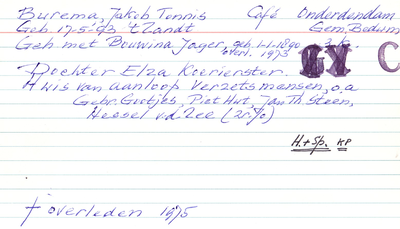 Burema, Jakob Tonnis Café Onderdendam
Geb. 17-5-'93 't Zandt Gem. Bedum
Geh met Bouwina Jager, geb. 1-1-1890
overl. 1973
Dochter Elza Koerierster.
Huis van aanloop verzetsmensen, o.a
Gebr. Gootjes, Piet Hut, Jan Th. Steen,
Hessel v.d. Zee (
H.+Sp. KP
† overleden 1975